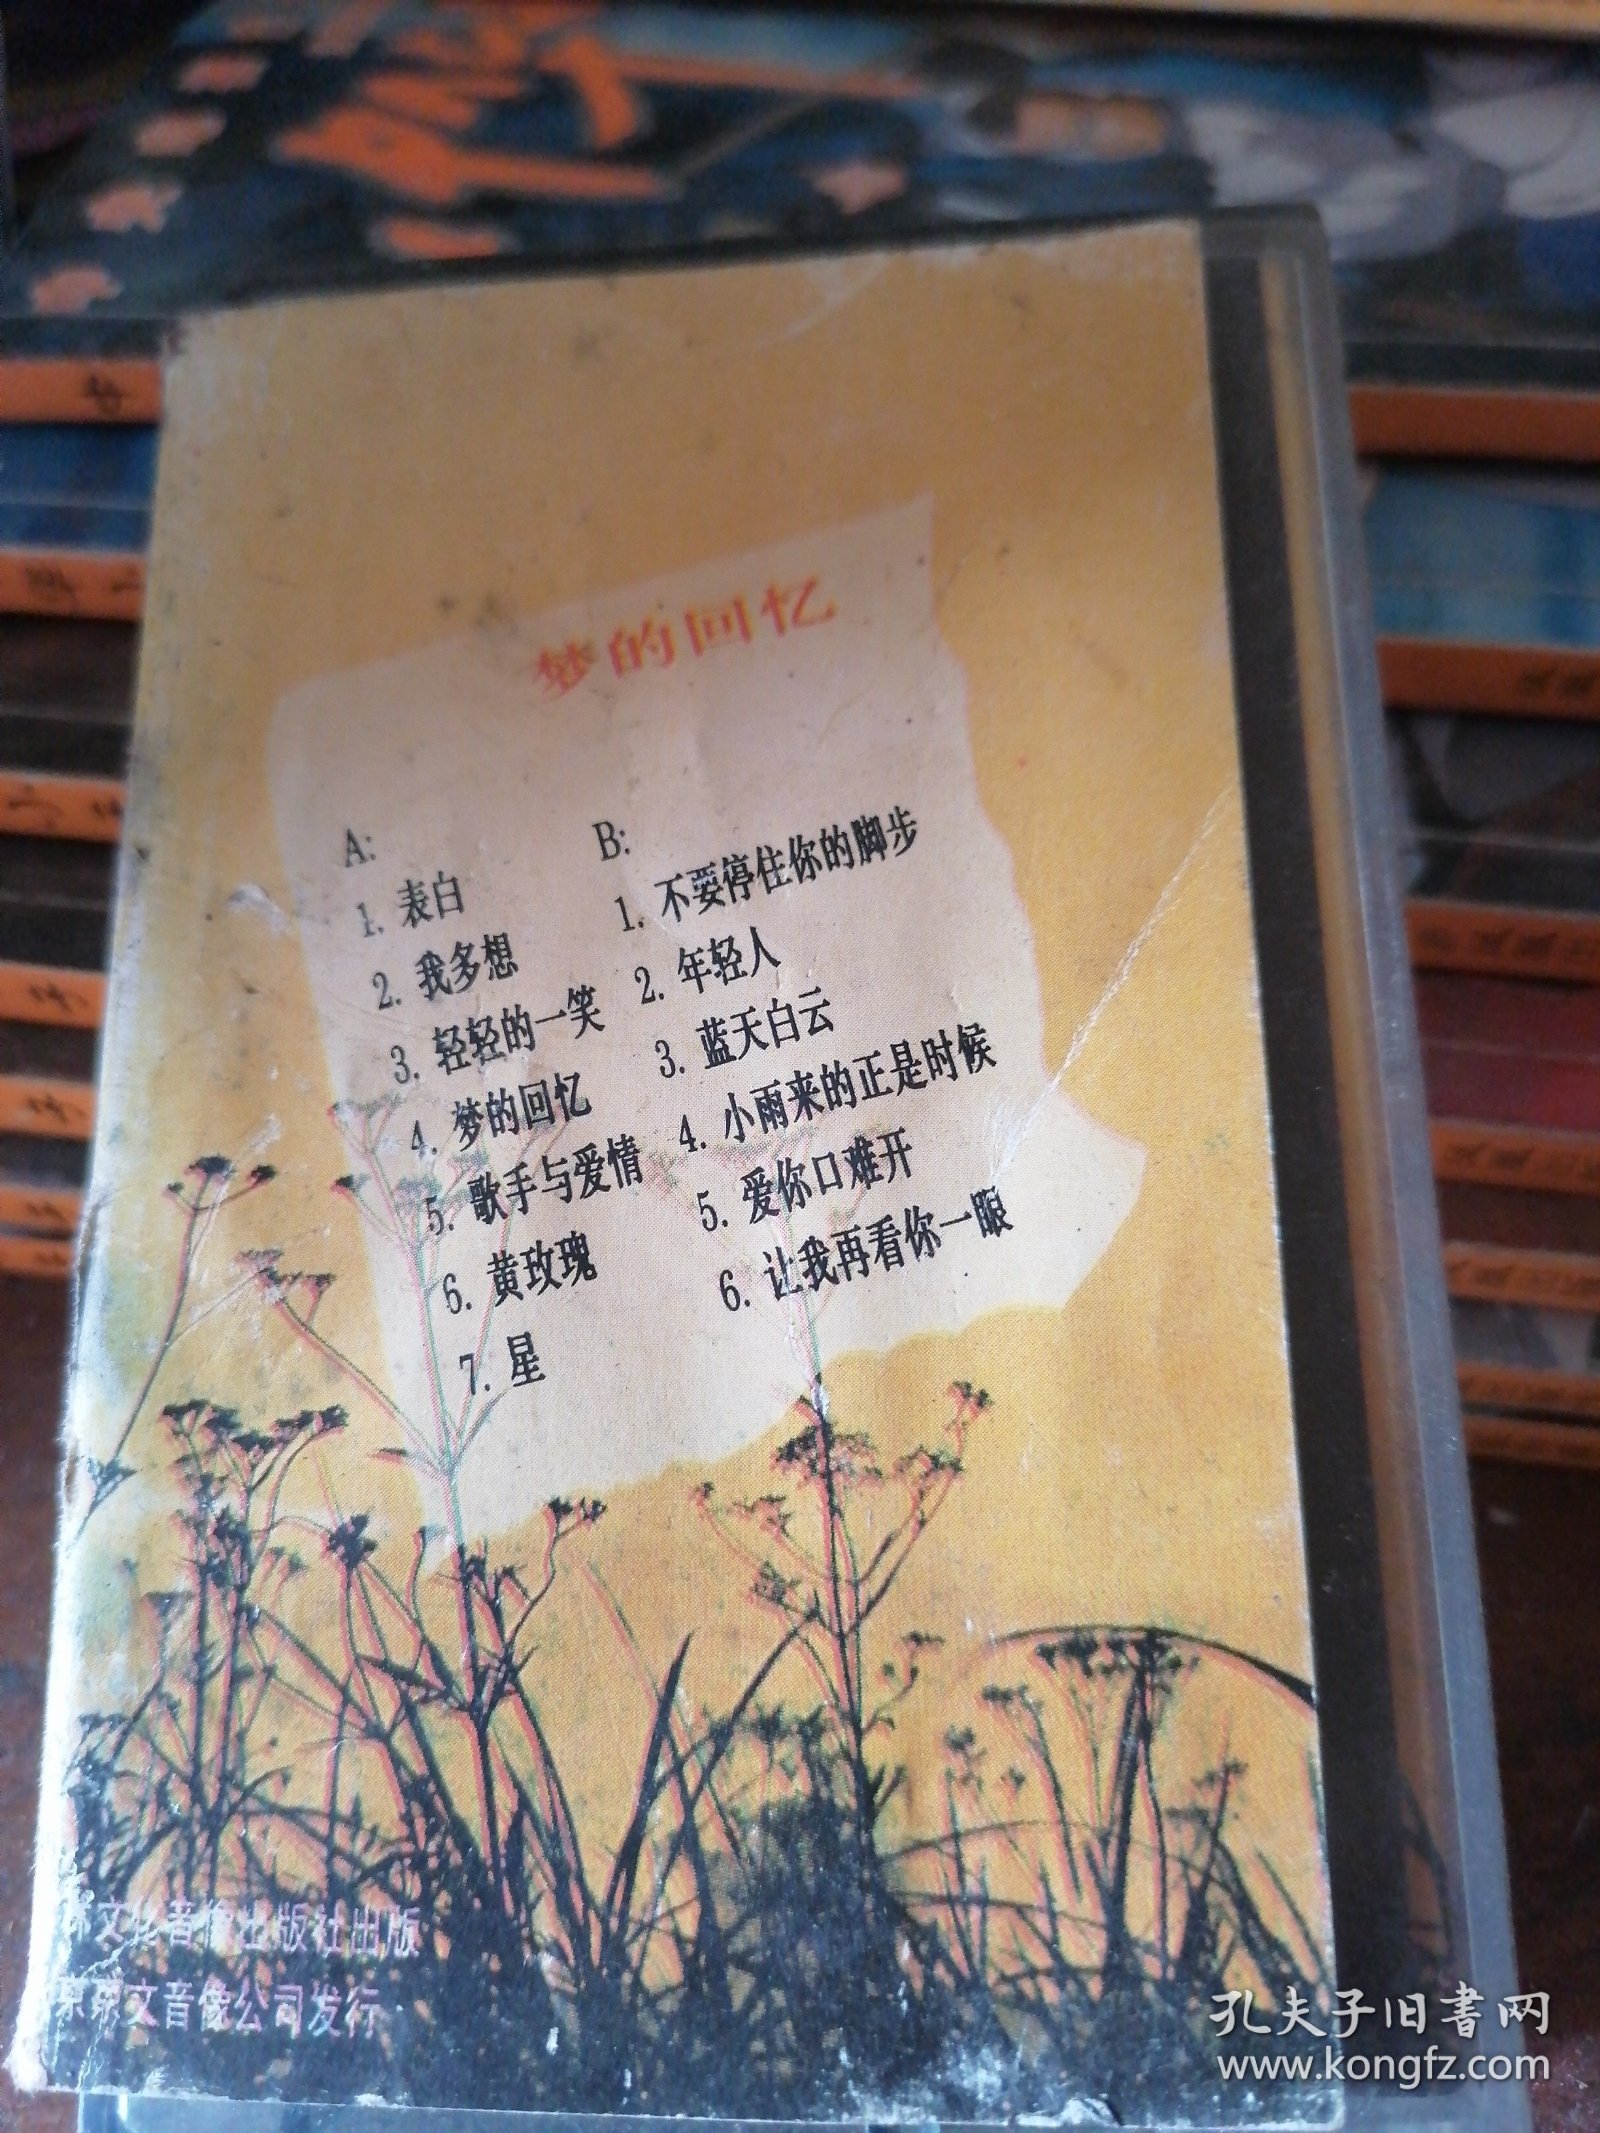 梦的回忆
A:
1. 表白
2. 我多想
3. 轻轻的一笑
4. 梦的回忆
5. 歌手与爱情
6. 黄玫瑰
7. 星
B:
1. 不要停住你的脚步
2. 年轻人
3. 蓝天白云
4. 小雨来的正是时候
5. 爱你口难开
6. 让我再看你一眼
文化音像出版社出版
京京文音像公司发行
孔夫子旧书网
www.kongfz.com